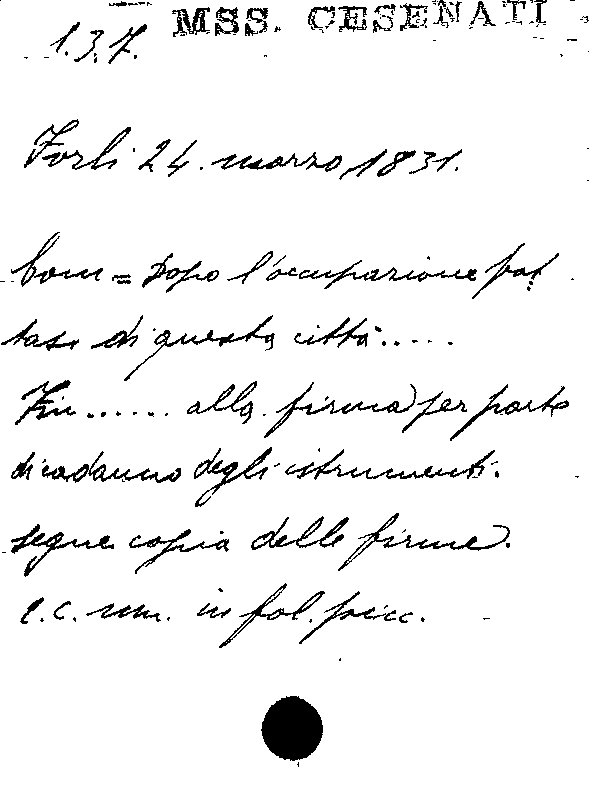 MSS. CESENATI
1.3.7.
Forlì 24. marzo 1831.
Com = Dopo l'occupazione fat
tasi di questa città.....
Fin...... alla firma per parte
di cadauno degli istrumenti.
segue copia delle firme.
c.c. nn. in fol. picc.